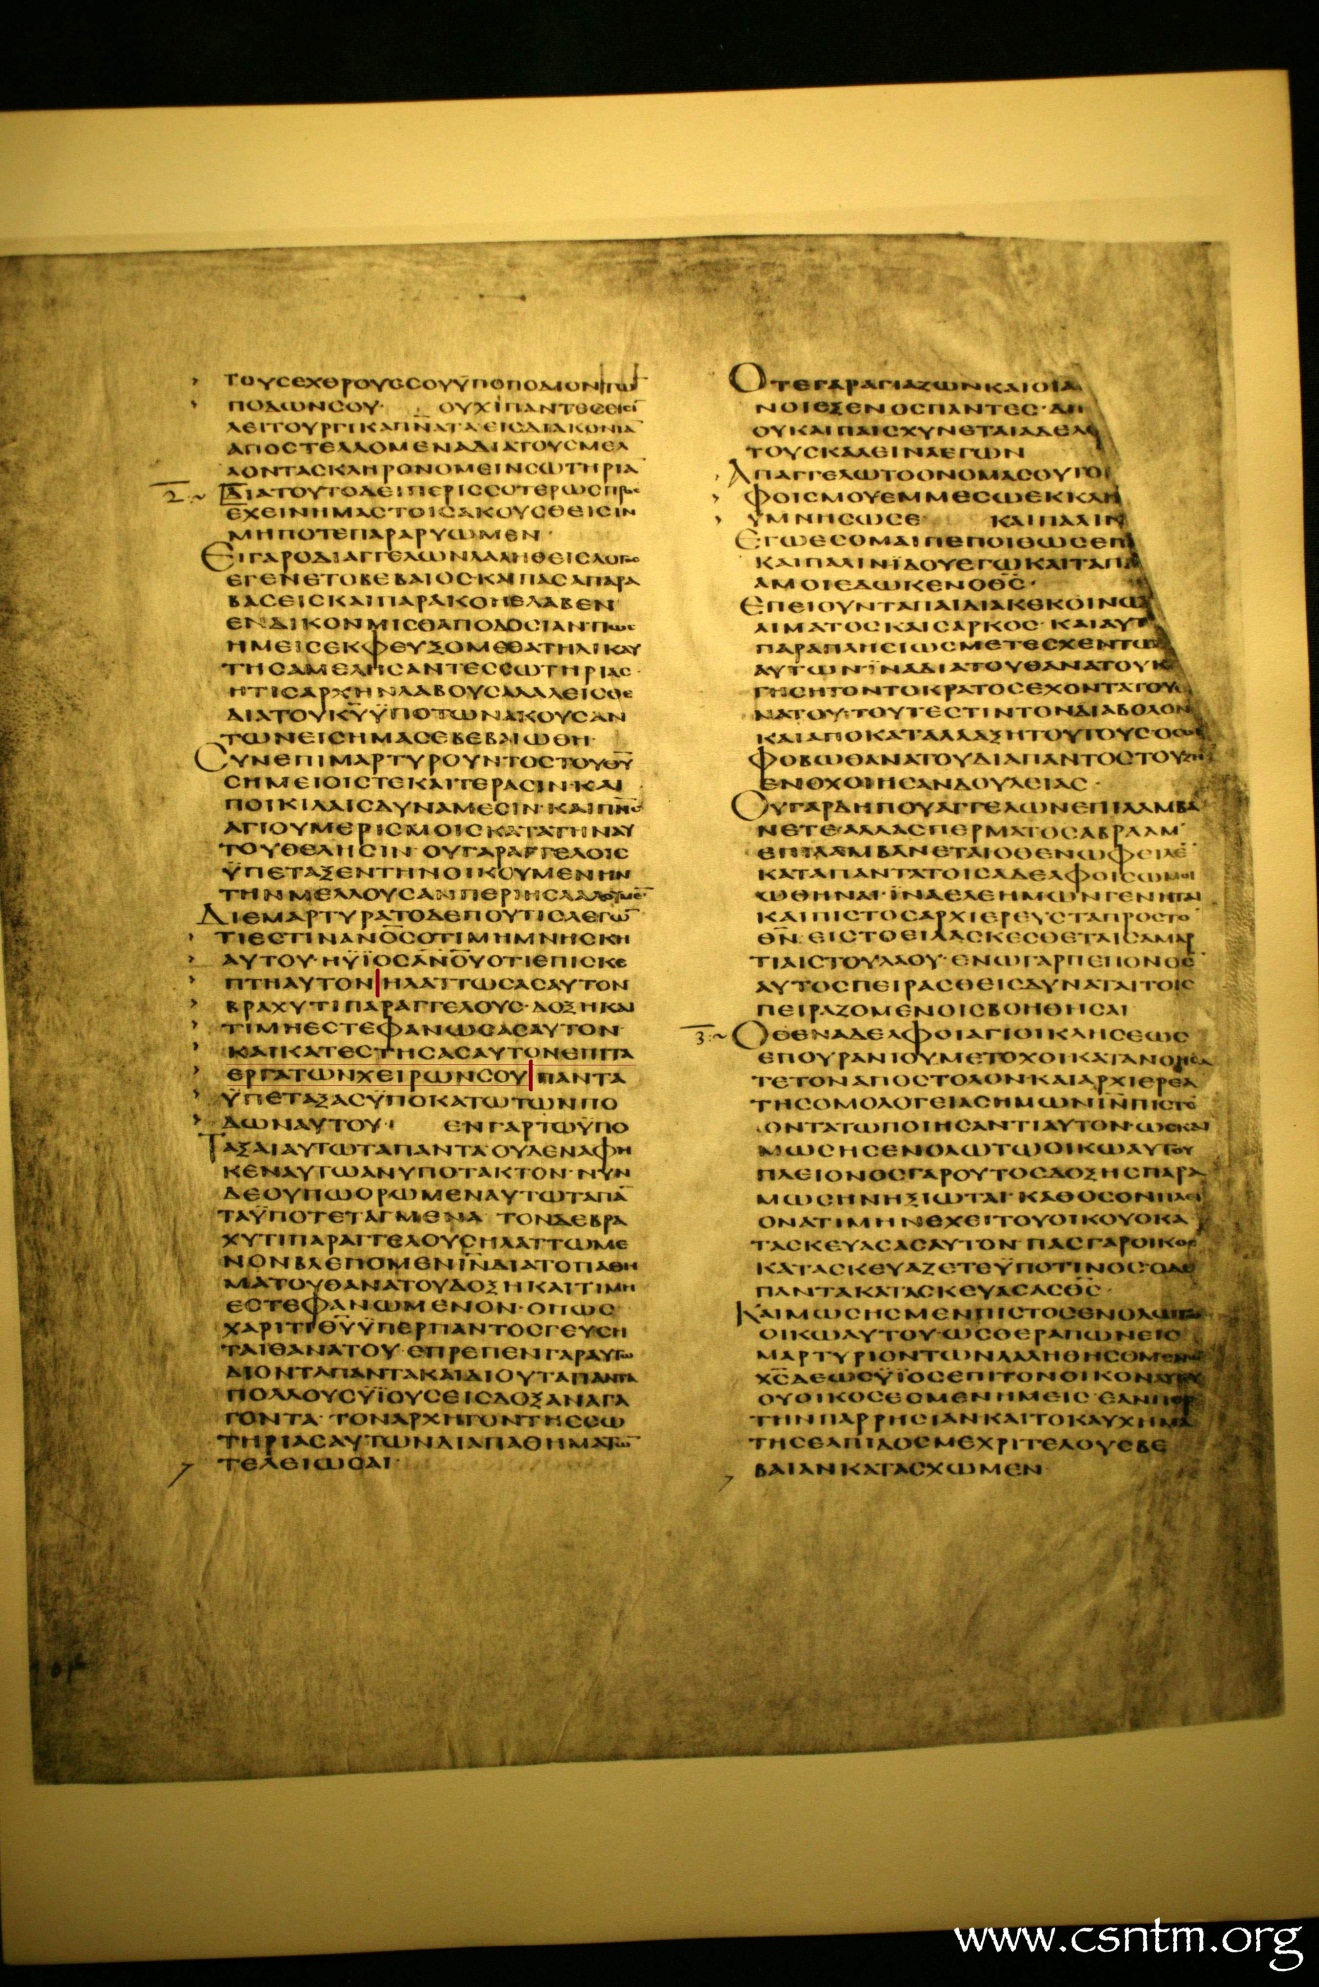 ΤΟΥСΕΧΘΡΟΥСϹΟΥΫΠΟΠΟΔΙΟΝΤΩ̅
ΠΟΔΩΝСΟΥ· ΟΥΧΙΠΑΝΤΕСΕΙСΙ̅
ΛΕΙΤΟΥΡΓΙΚΑΠΝ̅ΑΤΑΕΙСΔΙΑΚΟΝΙΑ̅
ΑΠΟСΤΕΛΛΟΜΕΝΑΔΙΑΤΟΥСΜΕΛ
ΛΟΝΤΑСΚΛΗΡΟΝΟΜΕΙΝСΩΤΗΡΙΑ̅
2
ΔΙΑΤΟΥΤΟΔΕΙΠΕΡΙССΟΤΕΡΩСΠΡΟС
ΕΧΕΙΝΗΜΑСΤΟΙСΑΚΟΥСΘΕΙСΙΝ
ΜΗΠΟΤΕΠΑΡΑΡΥΩΜΕΝ·
ΕΙΓΑΡΟΔΙΑΓΓΕΛΩΝΛΑΛΗΘΕΙСΛΟΓΟС
ΕΓΕΝΕΤΟΒΕΒΑΙΟС·ΚΑΙΠΑСΑΠΑΡΑ
ΒΑСΕΙСΚΑΙΠΑΡΑΚΟΗΕΛΑΒΕΝ
ΕΝΔΙΚΟΝΜΙСΘΑΠΟΔΟСΙΑΝ·ΠΩС
ΗΜΕΙСΕΚΦΕΥΞΟΜΕΘΑΤΗΛΙΚΑΥ
ΤΗСΑΜΕΛΗСΑΝΤΕССΩΤΗΡΙΑС·
ΗΤΙСΑΡΧΗΝΛΑΒΟΥСΑΛΑΛΕΙСΘΕ
ΔΙΑΤΟΥΚ̅Υ̅ΫΠΟΤΩΝΑΚΟΥСΑΝ
ΤΩΝΕΙСΗΜΑСΕΒΕΒΑΙΩΘΗ·
СΥΝΕΠΙΜΑΡΤΥΡΟΥΝΤΟСΤΟΥΘ̅Υ̅
СΗΜΕΙΟΙСΤΕΚΑΙΤΕΡΑСΙΝ·ΚΑΙ
ΠΟΙΚΙΛΑΙСΔΥΝΑΜΕСΙΝ·ΚΑΙΠΝ̅С
ΑΓΙΟΥΜΕΡΙСΜΟΙСΚΑΤΑΤΗΝΑΥ
ΤΟΥΘΕΛΗСΙΝ·ΟΥΓΑΡΑΓΓΕΛΟΙС
ΫΠΕΤΑΞΕΝΤΗΝΟΙΚΟΥΜΕΝΗΝ
ΤΗΝΜΕΛΛΟΥСΑΝΠΕΡΙΗСΛΑΛΟΥΜΕ̅
ΔΙΕΜΑΡΤΥΡΑΤΟΔΕΠΟΥΤΙСΛΕΓΩ̅
ΤΙΕСΤΙΝΑΝΟ̅СΟΤΙΜΙΜΝΗСΚΗ
ΑΥΤΟΥ·ΗΫΙΟСΑΝ̅ΟΥΟΤΙΕΠΙСΚΕ
ΠΤΗΑΥΤΟΝ|ΗΛΑΤΤΩСΑСΑΥΤΟΝ
ΒΡΑΧΥΤΙΠΑΡΑΓΓΕΛΟΥС·ΔΟΞΗΚΑΙ
ΤΙΜΗΕСΤΕΦΑΝΩСΑСΑΥΤΟΝ·
ΚΑΙΚΑΤΕСΤΗСΑСΑΥΤΟΝΕΠΙΤΑ
ΕΡΓΑΤΩΝΧΕΙΡΩΝСΟΥ|ΠΑΝΤΑ
ΫΠΕΤΑΞΑСΫΠΟΚΑΤΩΤΩΝΠΟ
ΔΩΝΑΥΤΟΥ· ΕΝΓΑΡΤΩΫΠΟ
ΤΑΞΑΙΑΥΤΩΤΑΠΑΝΤΑΟΥΔΕΝΑΦΗ
ΚΕΝΑΥΤΩΑΝΥΠΟΤΑΚΤΟΝ·ΝΥΝ
ΔΕΟΥΠΩΟΡΩΜΕΝΑΥΤΩΤΑΠΑ̅
ΤΑΫΠΟΤΕΤΑΓΜΕΝΑ ΤΟΝΔΕΒΡΑ
ΧΥΤΙΠΑΡΑΓΓΕΛΟΥСΗΛΑΤΤΩΜΕ
ΝΟΝΒΛΕΠΟΜΕΝΙ̅Ν̅ΔΙΑΤΟΠΑΘΗ
ΜΑΤΟΥΘΑΝΑΤΟΥΔΟΞΗΚΑΙΤΙΜΗ
ΕСΤΕΦΑΝΩΜΕΝΟΝ·ΟΠΩС
ΧΑΡΙΤΙΘ̅Υ̅ΫΠΕΡΠΑΝΤΟСΓΕΥСΗ
ΤΑΙΘΑΝΑΤΟΥ·ΕΠΡΕΠΕΝΓΑΡΑΥΤΩ
ΔΙΟΝΤΑΠΑΝΤΑΚΑΙΔΙΟΥΤΑΠΑΝΤΑ
ΠΟΛΛΟΥСΫΙΟΥСΕΙСΔΟΞΑΝΑΓΑ
ΓΟΝΤΑ·ΤΟΝΑΡΧΗΓΟΝΤΗССΩ
ΤΗΡΙΑСΑΥΤΩΝΔΙΑΠΑΘΗΜΑΤΩ̅
ΤΕΛΕΙΩСΑΙ·
ΟΤΕΓΑΡΑΓΙΑΖΩΝΚΑΙΟΙΑ
ΝΟΙΕΞΕΝΟСΠΑΝΤΕС·ΔΙ
ΟΥΚΑΙΠΑΙСΧΥΝΕΤΑΙΑΔΕΛ
ΤΟΥСΚΑΛΕΙΝΛΕΓΩΝ
ΑΠΑΓΓΕΛΩΤΟΟΝΟΜΑСΟΥΤΟΙ
ΦΟΙСΜΟΥΕΜΜΕСΩΕΚΚΛΗ
ΥΜΝΗСΩСΕ ΚΑΙΠΑΛΙΝ
ΕΓΩΕСΟΜΑΙΠΕΠΟΙΘΩСΕΠ
ΚΑΙΠΑΛΙΝΪΔΟΥΕΓΩΚΑΙΤΑΠΑ
ΑΜΟΙΕΔΩΚΕΝΟΘ̅С̅·
ΕΠΕΙΟΥΝΤΑΠΑΙΔΙΑΚΕΚΟΙΝΩ
ΑΙΜΑΤΟСΚΑΙСΑΡΚΟС·ΚΑΙΑΥΤ
ΠΑΡΑΠΛΗСΙΩСΜΕΤΕСΧΕΝΤΩ
ΑΥΤΩΝ·ΪΝΑΔΙΑΤΟΥΘΑΝΑΤΟΥΚ
ΓΗСΗΤΟΝΤΟΚΡΑΤΟСΕΧΟΝΤΑΤΟΥ
ΝΑΤΟΥ·ΤΟΥΤΕСΤΙΝΤΟΝΔΙΑΒΟΛΟΝ
ΚΑΙΑΠΟΚΑΤΑΛΛΑΞΗΤΟΥΤΟΥСΟС
ΦΟΒΩΘΑΝΑΤΟΥΔΙΑΠΑΝΤΟСΤΟΥΖΗ
ΕΝΟΧΟΙΗСΑΝΔΟΥΛΕΙΑС·
ΟΥΓΑΡΔΗΠΟΥΑΓΓΕΛΩΝΕΠΙΛΑΜΒΑ
ΝΕΤΕ·ΑΛΛΑСΠΕΡΜΑΤΟСΑΒΡΑΑΜ
ΕΠΙΛΑΜΒΑΝΕΤΑΙΟΘΕΝΩΦΕΙΛΕ̅
ΚΑΤΑΠΑΝΤΑΤΟΙСΑΔΕΛΦΟΙСΟΜΟΙ
ΩΘΗΝΑΙ·ΪΝΑΕΛΕΗΜΩΝΓΕΝΗΤΑΙ
ΚΑΙΠΙСΤΟСΑΡΧΙΕΡΕΥСΤΑΠΡΟСΤΟ̅
Θ̅Ν̅·ΕΙСΤΟΕΙΛΑСΚΕСΘΕΤΑΙСΑΜΑΡ
ΤΙΑΙСΤΟΥΛΑΟΥ·ΕΝΩΓΑΡΠΕΠΟΝΘΕ̅
ΑΥΤΟСΠΕΙΡΑСΘΕΙСΔΥΝΑΤΑΙΤΟΙС
ΠΕΙΡΑΖΟΜΕΝΟΙСΒΟΗΘΗСΑΙ
3
ΟΘΕΝΑΔΕΛΦΟΙΑΓΙΟΙΚΛΗСΕΩС
ΕΠΟΥΡΑΝΙΟΥΜΕΤΟΧΟΙΚΑΤΑΝΟΗСΑ
ΤΕΤΟΝΑΠΟСΤΟΛΟΝΚΑΙΑΡΧΙΕΡΕΑ
ΤΗСΟΜΟΛΟΓΕΙΑСΗΜΩΝΙ̅Ν̅ΠΙСΤΟ̅
ΟΝΤΑΤΩΠΟΙΗСΑΝΤΙΑΥΤΟΝ·ΩСΚΑΙ
ΜΩСΗСΕΝΟΛΩΤΩΟΙΚΩΑΥΤΟΥ
ΠΛΕΙΟΝΟСΓΑΡΟΥΤΟСΔΟΞΗСΠΑΡΑ
ΜΩСΗΝΗΞΙΩΤΑΙ·ΚΑΘΟСΟΝΠΛΕΙ
ΟΝΑΤΙΜΗΝΕΧΕΙΤΟΥΟΙΚΟΥΟΚΑ
ΤΑСΚΕΥΑСΑСΑΥΤΟΝ·ΠΑСΓΑΡΟΙΚΟС
ΚΑΤΑСΚΕΥΑΖΕΤΕΫΠΟΤΙΝΟС·ΟΔΕ
ΠΑΝΤΑΚΑΤΑСΚΕΥΑСΑСΘ̅С̅·
ΚΑΙΜΩСΗСΜΕΝΠΙСΤΟСΕΝΟΛΩ
ΟΙΚΩΑΥΤΟΥ·ΩСΘΕΡΑΠΩΝΕΙС
ΜΑΡΤΥΡΙΟΝΤΩΝΛΑΛΗΘΗСΟΜΕΝΩ
Χ̅С̅ΔΕΩСΫΙΟСΕΠΙΤΟΝΟΙΚΟΝΑΥΤΟΥ
ΟΥΟΙΚΟСΕСΜΕΝΗΜΕΙС·ΕΑΝΠΕΡ
ΤΗΝΠΑΡΡΗСΙΑΝΚΑΙΤΟΚΑΥΧΗΜΑ
ΤΗСΕΛΠΙΔΟСΜΕΧΡΙΤΕΛΟΥСΒΕ
ΒΑΙΑΝΚΑΤΑСΧΩΜΕΝ·
www.csntm.org